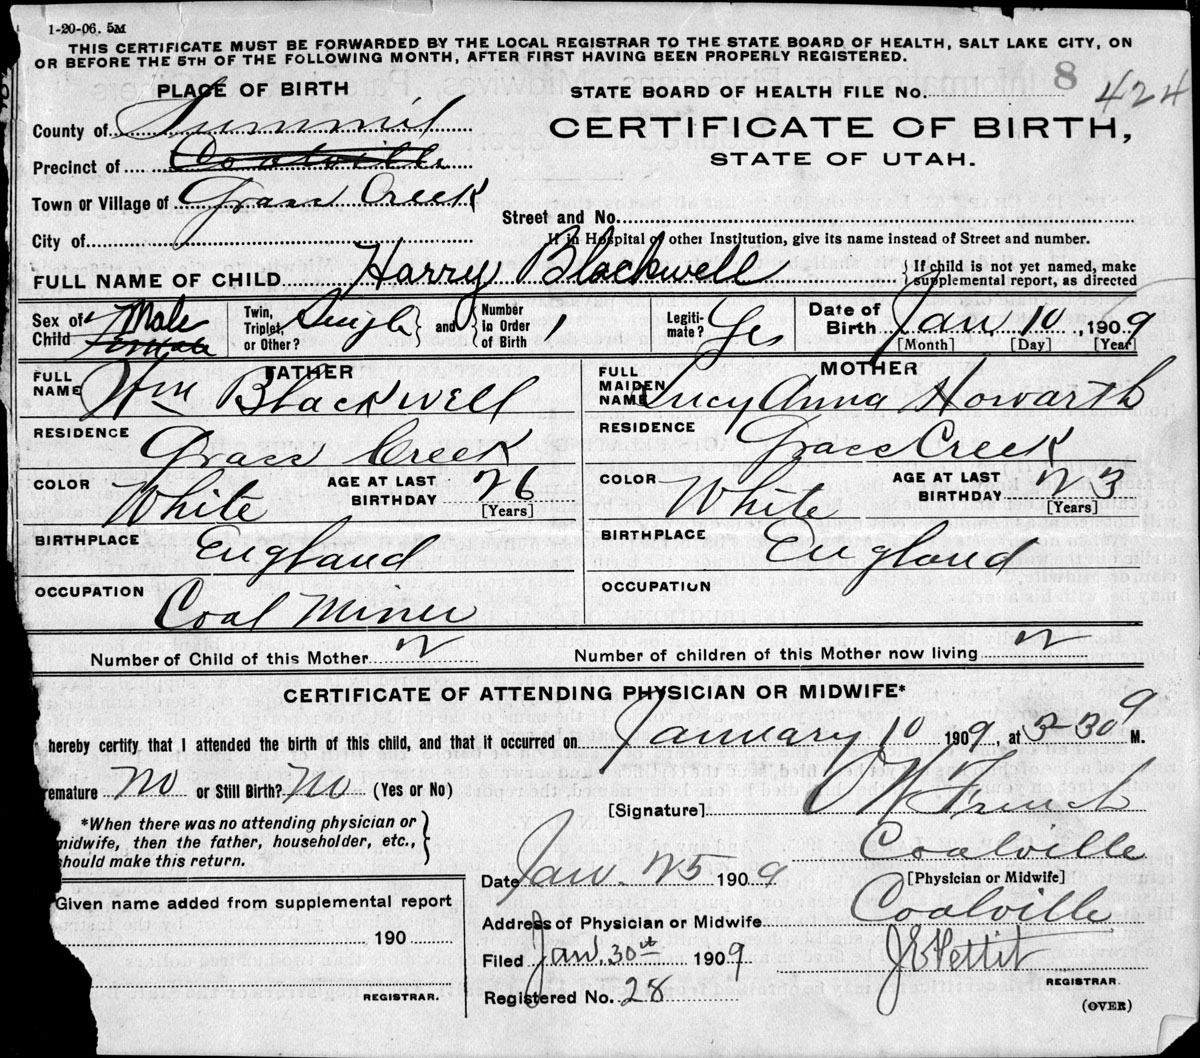 1-20-06. 5M
THIS CERTIFICATE MUST BE FORWARDED BY THE LOCAL REGISTRAR TO THE STATE BOARD OF HEALTH, SALT LAKE CITY, ON
OR BEFORE THE 5TH OF THE FOLLOWING MONTH, AFTER FIRST HAVING BEEN PROPERLY REGISTERED.
PLACE OF BIRTH
STATE BOARD OF HEALTH FILE No. 8 424
County of Summit
CERTIFICATE OF BIRTH,
Precinct of Coalville
STATE OF UTAH.
Town or Village of Grass Creek
Street and No.
City of
If in Hospital or other Institution, give its name instead of Street and number.
FULL NAME OF CHILD Harry Blackwell } If child is not yet named, make
supplemental report, as directed
Sex of Child Male Female
Twin, Triplet, or Other? Single } and { Number in Order of Birth 1
Legitimate? Ye
Date of Birth Jan 10, 1909
[Month] [Day] [Year]
FATHER
FULL NAME Wm Blackwell
MOTHER
FULL MAIDEN NAME Lucy Anna Howarth
RESIDENCE Grass Creek
RESIDENCE Grass Creek
COLOR White AGE AT LAST BIRTHDAY 26 [Years]
COLOR White AGE AT LAST BIRTHDAY 23 [Years]
BIRTHPLACE England
BIRTHPLACE England
OCCUPATION Coal Miner
OCCUPATION
Number of Child of this Mother 2
Number of children of this Mother now living 2
CERTIFICATE OF ATTENDING PHYSICIAN OR MIDWIFE*
hereby certify that I attended the birth of this child, and that it occurred on January 10 1909, at 3-30 M.
remature No or Still Birth? No (Yes or No)
[Signature]
*When there was no attending physician or
midwife, then the father, householder, etc.,
should make this return.
Coalville
[Physician or Midwife]
Date Jan. 25 1909
Address of Physician or Midwife Coalville
Given name added from supplemental report
190
REGISTRAR.
Filed Jan 30th 1909
J E Pettit
REGISTRAR.
Registered No. 28
(OVER)